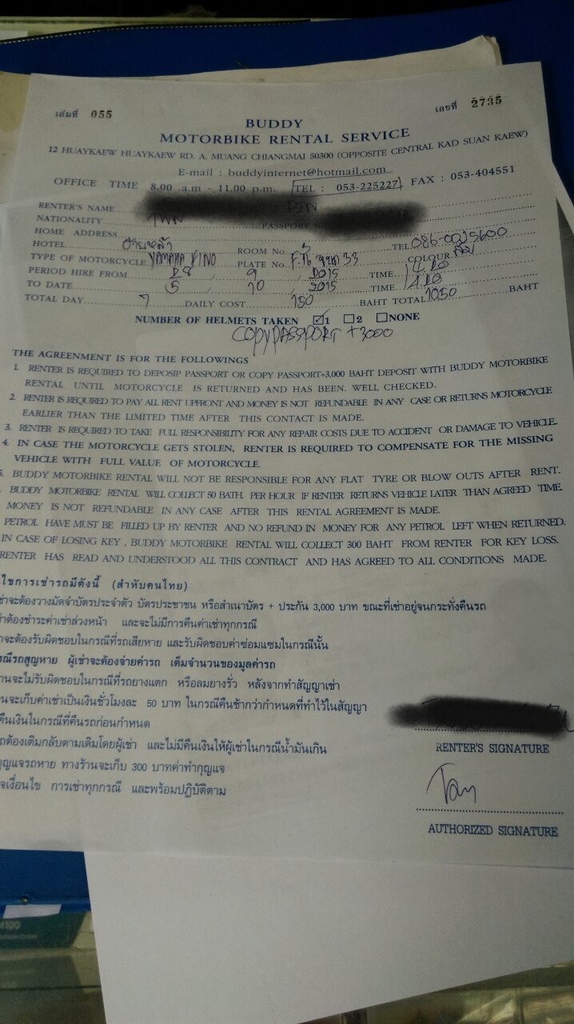 เล่มที่ 055 เลขที่ 2735
BUDDY
MOTORBIKE RENTAL SERVICE
12 HUAYKAEW HUAYKAEW RD. A. MUANG CHIANGMAI 50300 (OPPOSITE CENTRAL KAD SUAN KAEW)
E-mail : buddyinternet@hotmail.com
OFFICE TIME 8.00 .a.m - 11.00 p.m. TEL : 053-225227 FAX : 053-404551
RENTER'S NAME
NATIONALITY TWN PASSPORT
HOME ADDRESS
HOTEL ROOM No. 5 TEL 086-0025600
TYPE OF MOTORCYCLE YAMAHA FINO PLATE No. COLOUR
PERIOD HIRE FROM 28 9 2015 TIME
TO DATE 5 10 2015 TIME
TOTAL DAY 7 DAILY COST 150 BAHT TOTAL 1050 BAHT
NUMBER OF HELMETS TAKEN ☑1 ☐2 ☐NONE
COPY PASSPORT +3000
THE AGREENMENT IS FOR THE FOLLOWINGS
1. RENTER IS REQUIRED TO DEPOSIP PASSPORT OR COPY PASSPORT+3,000 BAHT DEPOSIT WITH BUDDY MOTORBIKE
RENTAL UNTIL MOTORCYCLE IS RETURNED AND HAS BEEN. WELL CHECKED.
2. RENTER IS REQUIRED TO PAY ALL RENT UPFRONT AND MONEY IS NOT REFUNDABLE IN ANY CASE OR RETURNS MOTORCYCLE
EARLIER THAN THE LIMITED TIME AFTER THIS CONTACT IS MADE.
3. RENTER IS REQUIRED TO TAKE FULL RESPONSIBILITY FOR ANY REPAIR COSTS DUE TO ACCIDENT OR DAMAGE TO VEHICLE.
4. IN CASE THE MOTORCYCLE GETS STOLEN, RENTER IS REQUIRED TO COMPENSATE FOR THE MISSING
VEHICLE WITH FULL VALUE OF MOTORCYCLE.
BUDDY MOTORBIKE RENTAL WILL NOT BE RESPONSIBLE FOR ANY FLAT TYRE OR BLOW OUTS AFTER RENT.
BUDDY MOTORBIKE RENTAL WILL COLLECT 50 BATH. PER HOUR IF RENTER RETURNS VEHICLE LATER THAN AGREED TIME.
MONEY IS NOT REFUNDABLE IN ANY CASE AFTER THIS RENTAL AGREEMENT IS MADE.
PETROL HAVE MUST BE FILLED UP BY RENTER AND NO REFUND IN MONEY FOR ANY PETROL LEFT WHEN RETURNED.
IN CASE OF LOSING KEY , BUDDY MOTORBIKE RENTAL WILL COLLECT 300 BAHT FROM RENTER FOR KEY LOSS.
RENTER HAS READ AND UNDERSTOOD ALL THIS CONTRACT AND HAS AGREED TO ALL CONDITIONS MADE.
ไขการเช่ารถมีดังนี้ (สำหับคนไทย)
ช่าจะต้องวางมัดจำบัตรประจำตัว บัตรประชาชน หรือสำเนาบัตร + ประกัน 3,000 บาท ขณะที่เช่าอยู่จนกระทั่งคืนรถ
ต้องชำระค่าเช่าล่วงหน้า และจะไม่มีการคืนค่าเช่าทุกกรณี
จะต้องรับผิดชอบในกรณีที่รถเสียหาย และรับผิดชอบค่าซ่อมแซมในกรณีนั้น
รณีรถสูญหาย ผู้เช่าจะต้องจ่ายค่ารถ เต็มจำนวนของมูลค่ารถ
านจะไม่รับผิดชอบในกรณีที่รถยางแตก หรือลมยางรั่ว หลังจากทำสัญญาเช่า
นจะเก็บค่าเช่าเป็นเงินชั่วโมงละ 50 บาท ในกรณีคืนช้ากว่ากำหนดที่ทำไว้ในสัญญา
คืนเงินในกรณีที่คืนรถก่อนกำหนด
ถต้องเติมกลับตามเดิมโดยผู้เช่า และไม่มีคืนเงินให้ผู้เช่าในกรณีน้ำมันเกิน
กุญแจรถหาย ทางร้านจะเก็บ 300 บาทค่าทำกุญแจ
จเงื่อนไข การเช่าทุกกรณี และพร้อมปฏิบัติตาม
RENTER'S SIGNATURE
AUTHORIZED SIGNATURE